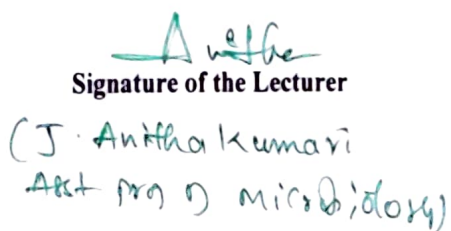 Anitha
Signature of the Lecturer
(J. Anitha Kumari
Asst prof of Microbiology)